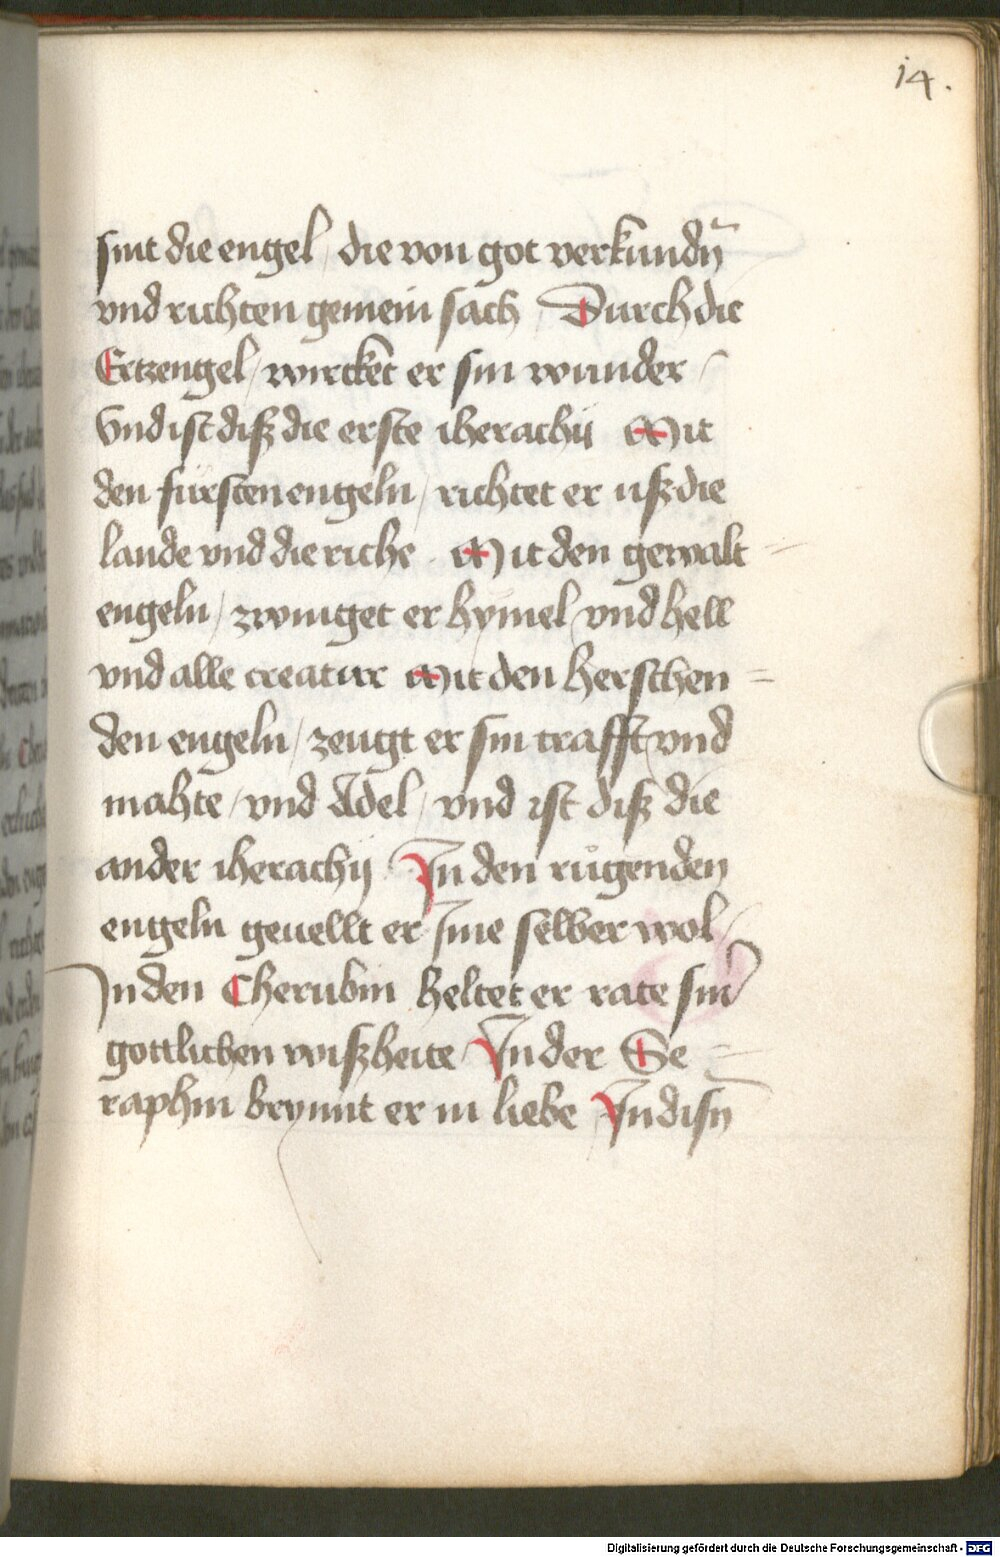 14.
sint die engel / die von got verkundn̄
vnd richten gemein sach Durch die
Ertzengel / wircket er sin wunder /
Vnd ist disz die erste iherachij Mit
den fursten engeln / richtet er usz die
lande vnd die riche . Mit den gewalt =
engeln / zwinget er hymel / vnd hell
vnd alle creatur Mit den herschen =
den engeln / zeugt er sin crafft vnd
mahte / vnd Adel / vnd ist disz die
ander iherachij In den růgenden
engeln geuellt er Ime selber wol /
In den Cherubin heltet er rate sin̄
gottlichen wiszheite / In der Se =
raphin brynnt er in liebe In disn̄
Digitalisierung gefördert durch die Deutsche Forschungsgemeinschaft - DFG